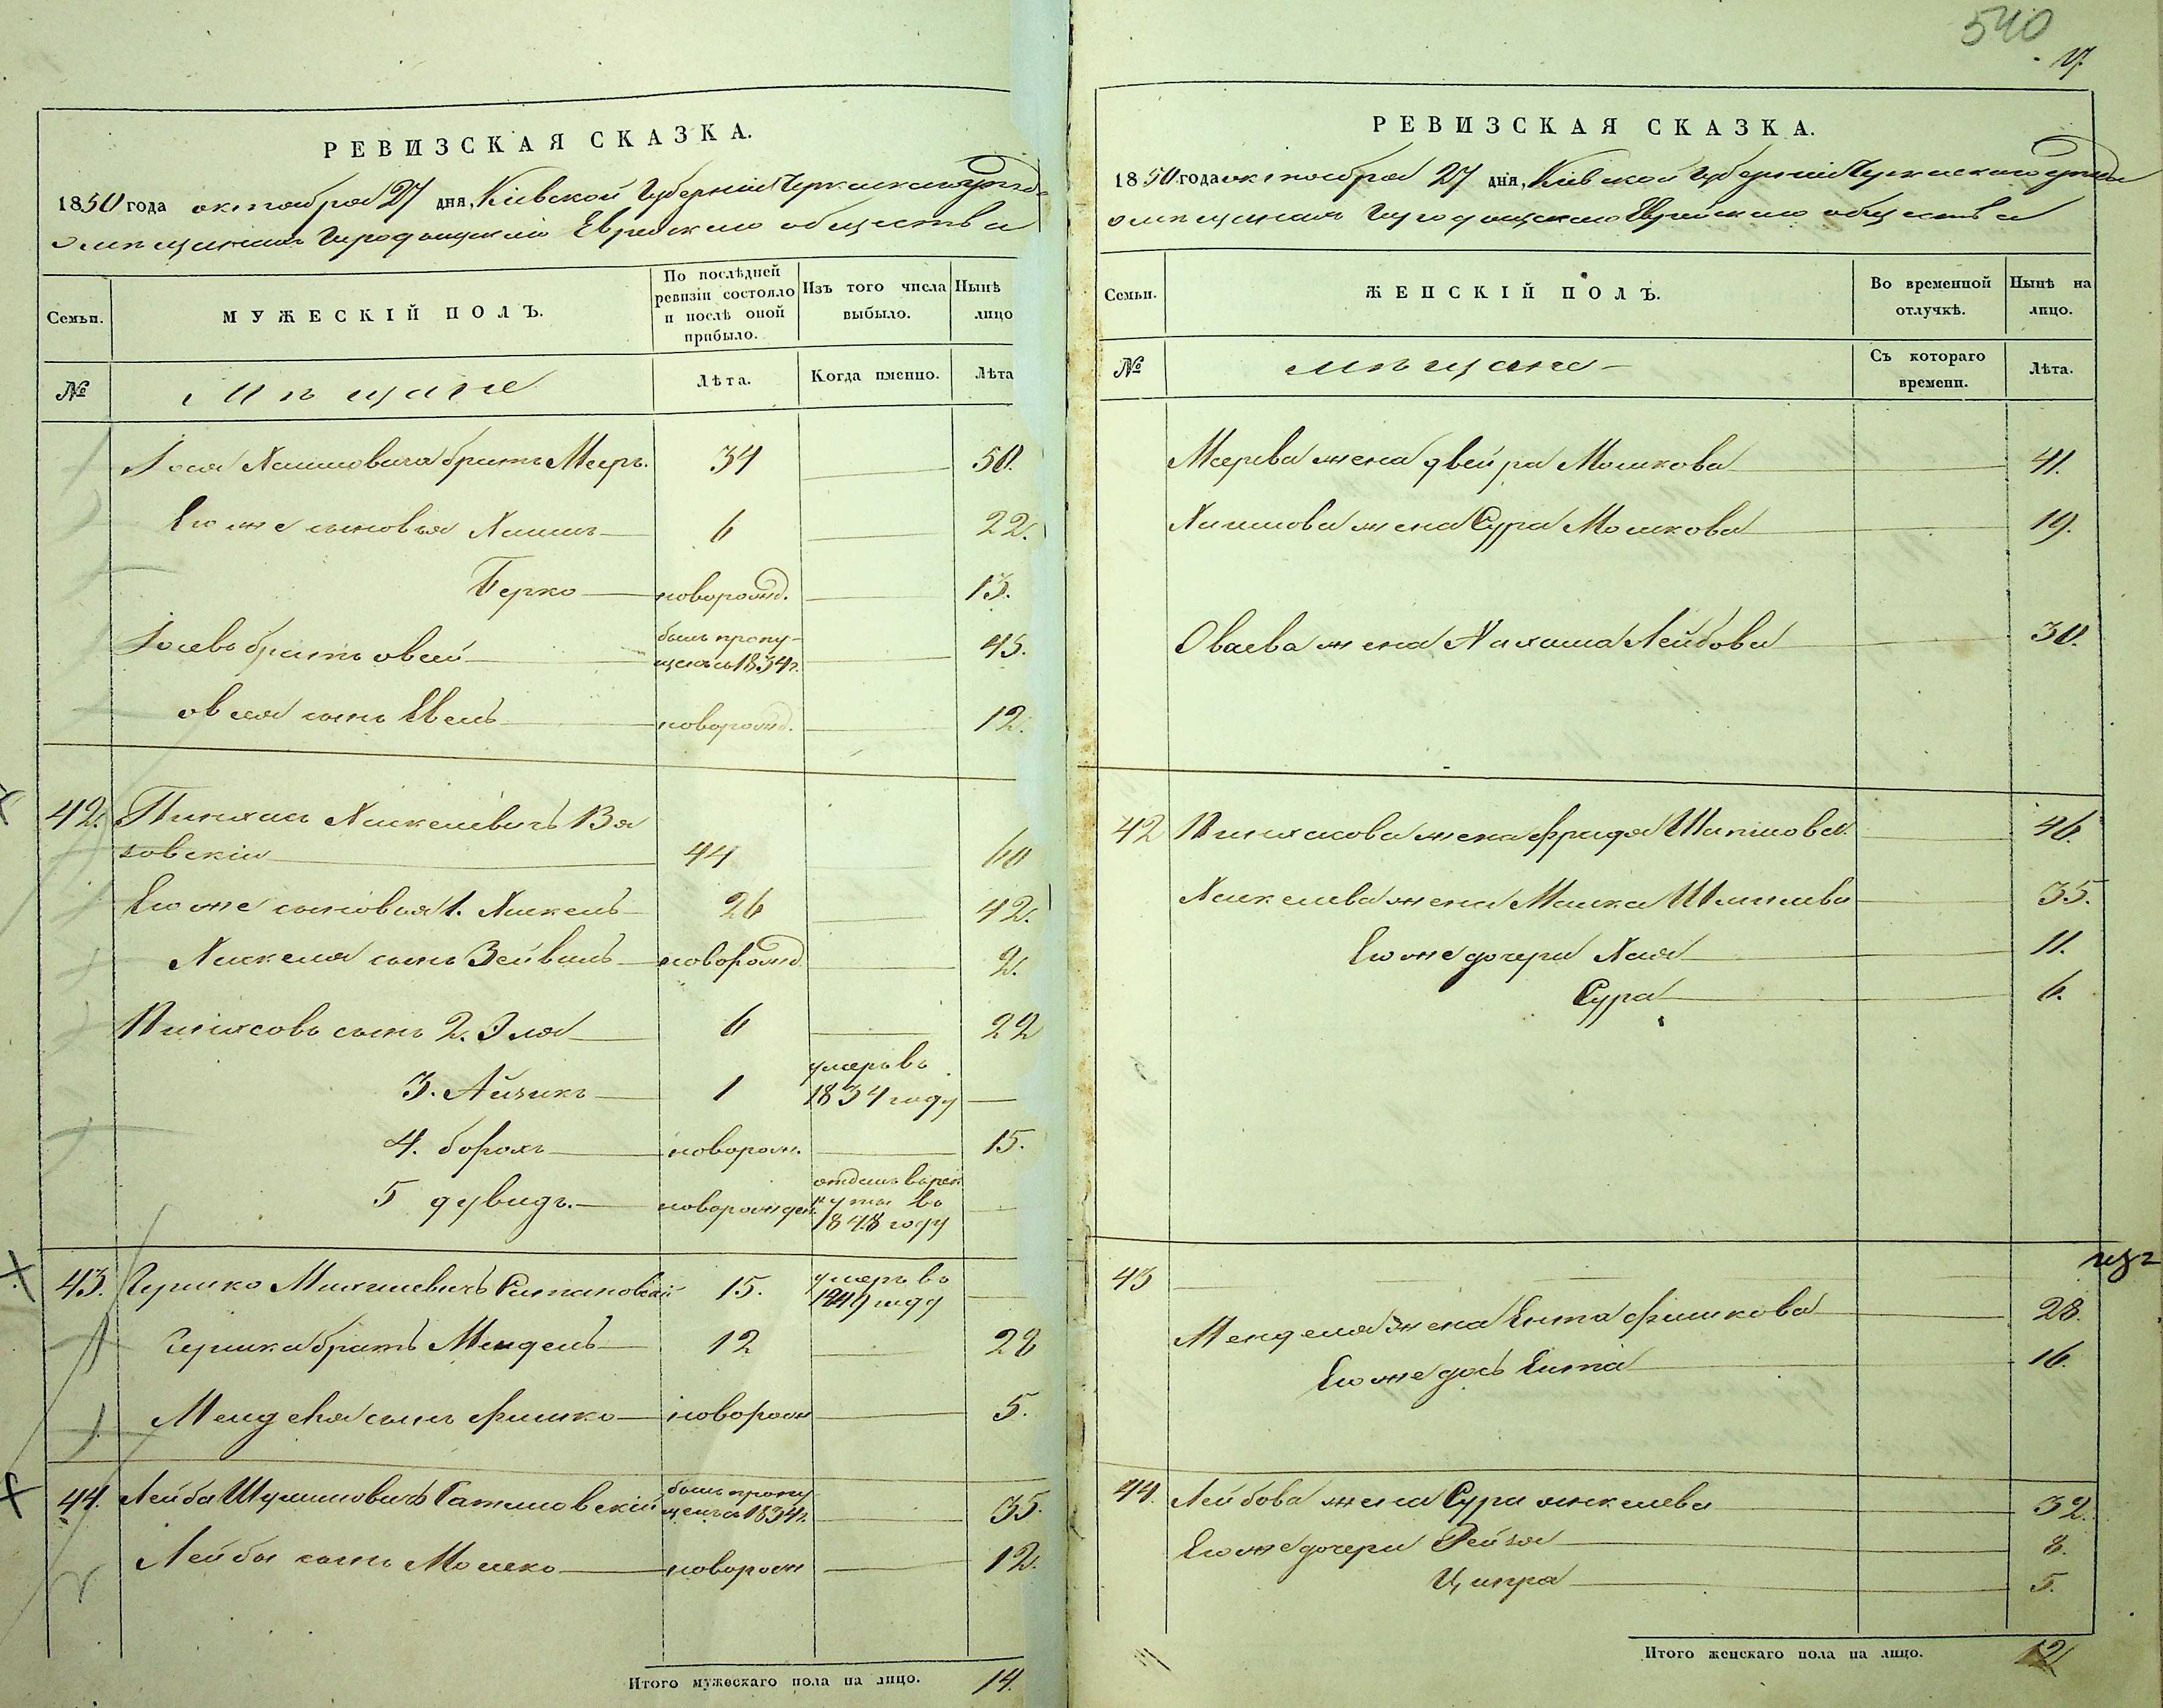 540
17.
РЕВИЗСКАЯ СКАЗКА.
1850 года октября 27 дня, Кіевской Губерніи Черкаскаго уѣзда
о мѣщанахъ Городищскаго Еврейскаго общества
Семьи.
МУЖЕСКІЙ ПОЛЪ.
По послѣдней ревизіи состояло и послѣ оной прибыло.
Изъ того числа выбыло.
Нынѣ лицо
№
Мѣщане
Лѣта.
Когда именно.
Лѣта
Іося Хаимовича братъ Мееръ. 34 50.
Его же сыновья Хаимъ 6 22.
Берко новорожд. 13.
Іосевъ братъ овсей былъ пропущенъ съ 1834 г. 45.
овсея сынъ Евель новорожд. 12.
42. Пинхас Хаскелевичъ Вязовскій 44 60
Его же сыновья 1. Хаскель 26 42.
Хаскеля сынъ Зейвель новорожд 2.
Пинхасовъ сынъ 2. Эля 6 22
3. Айзикъ 1 умеръ въ 1834 году
4. борохъ новорож. 15.
5 дувидъ. новорожден. отданъ въ рекруты въ 1848 году
43. Гершко 15. умеръ въ 1849 году
Гершка братъ Мендель 12 28
Менделя сынъ Фишко новорож 5.
44. Лейба былъ пропущенъ съ 1834 г. 35.
Лейбы сынъ Мошко новорож 12.
Итого мужескаго пола на лицо. 14.
РЕВИЗСКАЯ СКАЗКА.
1850 года октября 27 дня, Кіевской Губерніи Черкаскаго уѣзда
о мѣщанахъ Городищскаго Еврейскаго общества
Семьи.
ЖЕНСКІЙ ПОЛЪ.
Во временной отлучкѣ.
Нынѣ на лицо.
№
мѣщане
Съ котораго времени.
Лѣта.
Меерова жена двейра Мошкова 41.
Хаимова жена Сура Мошкова 19.
Овсеева жена Лейбова 30.
42 Пинхасова жена Фрида 46.
Хаскелева жена 35.
Его же дочери Хая 11.
Сура 6.
43
Менделя жена Ента Фишкова 28.
Его же дочь Ента 16.
44. Лейбова жена Сура 32.
Его же дочери Рейзя 8.
Ципра 5.
Итого женскаго пола на лицо. 12